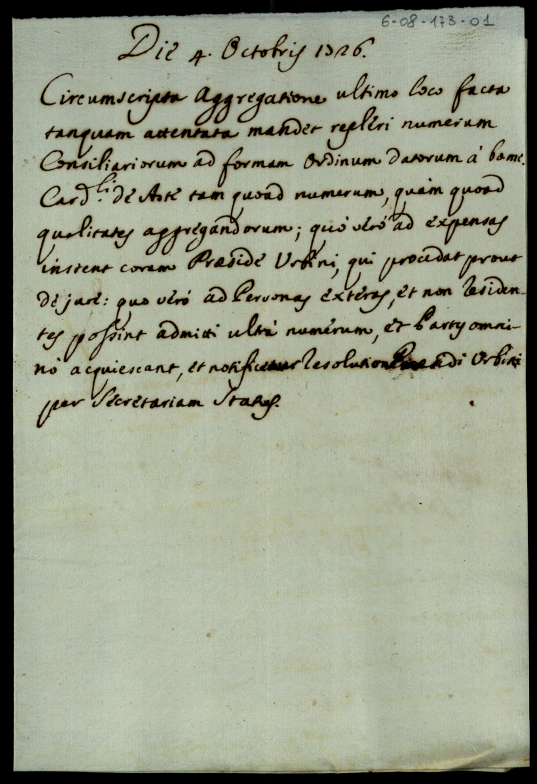 6-08-173-01
Die 4. Octobris 1726.
Circumscripta Aggregatione ultimo loco facta
tanquam attentata mandet repleri numerum
Consiliariorum ad formam Ordinum datorum à bo: me:
Card.li de Aste tam quoad numerum, quàm quoad
qualitates aggregandorum; quò verò ad expensas
instent coram Præside Urbini, qui procedat prout
de jure: quo verò ad Personas exteras, et non residen-
tes possint admitti ultrà numerum, et Partes omni-
nò acquiescant, et notificetur resolutio Urbini
per Secretariam Status.